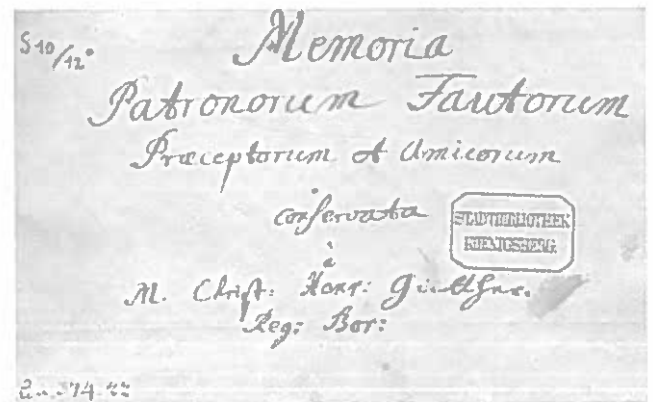 S 10/12°
Memoria
Patronorum Fautorum
Præceptorum et Amicorum
conservata
STADTBIBLIOTHEK
KOENIGSBERG
à
M. Christ: Henr: Günther.
Reg: Bor:
74.22